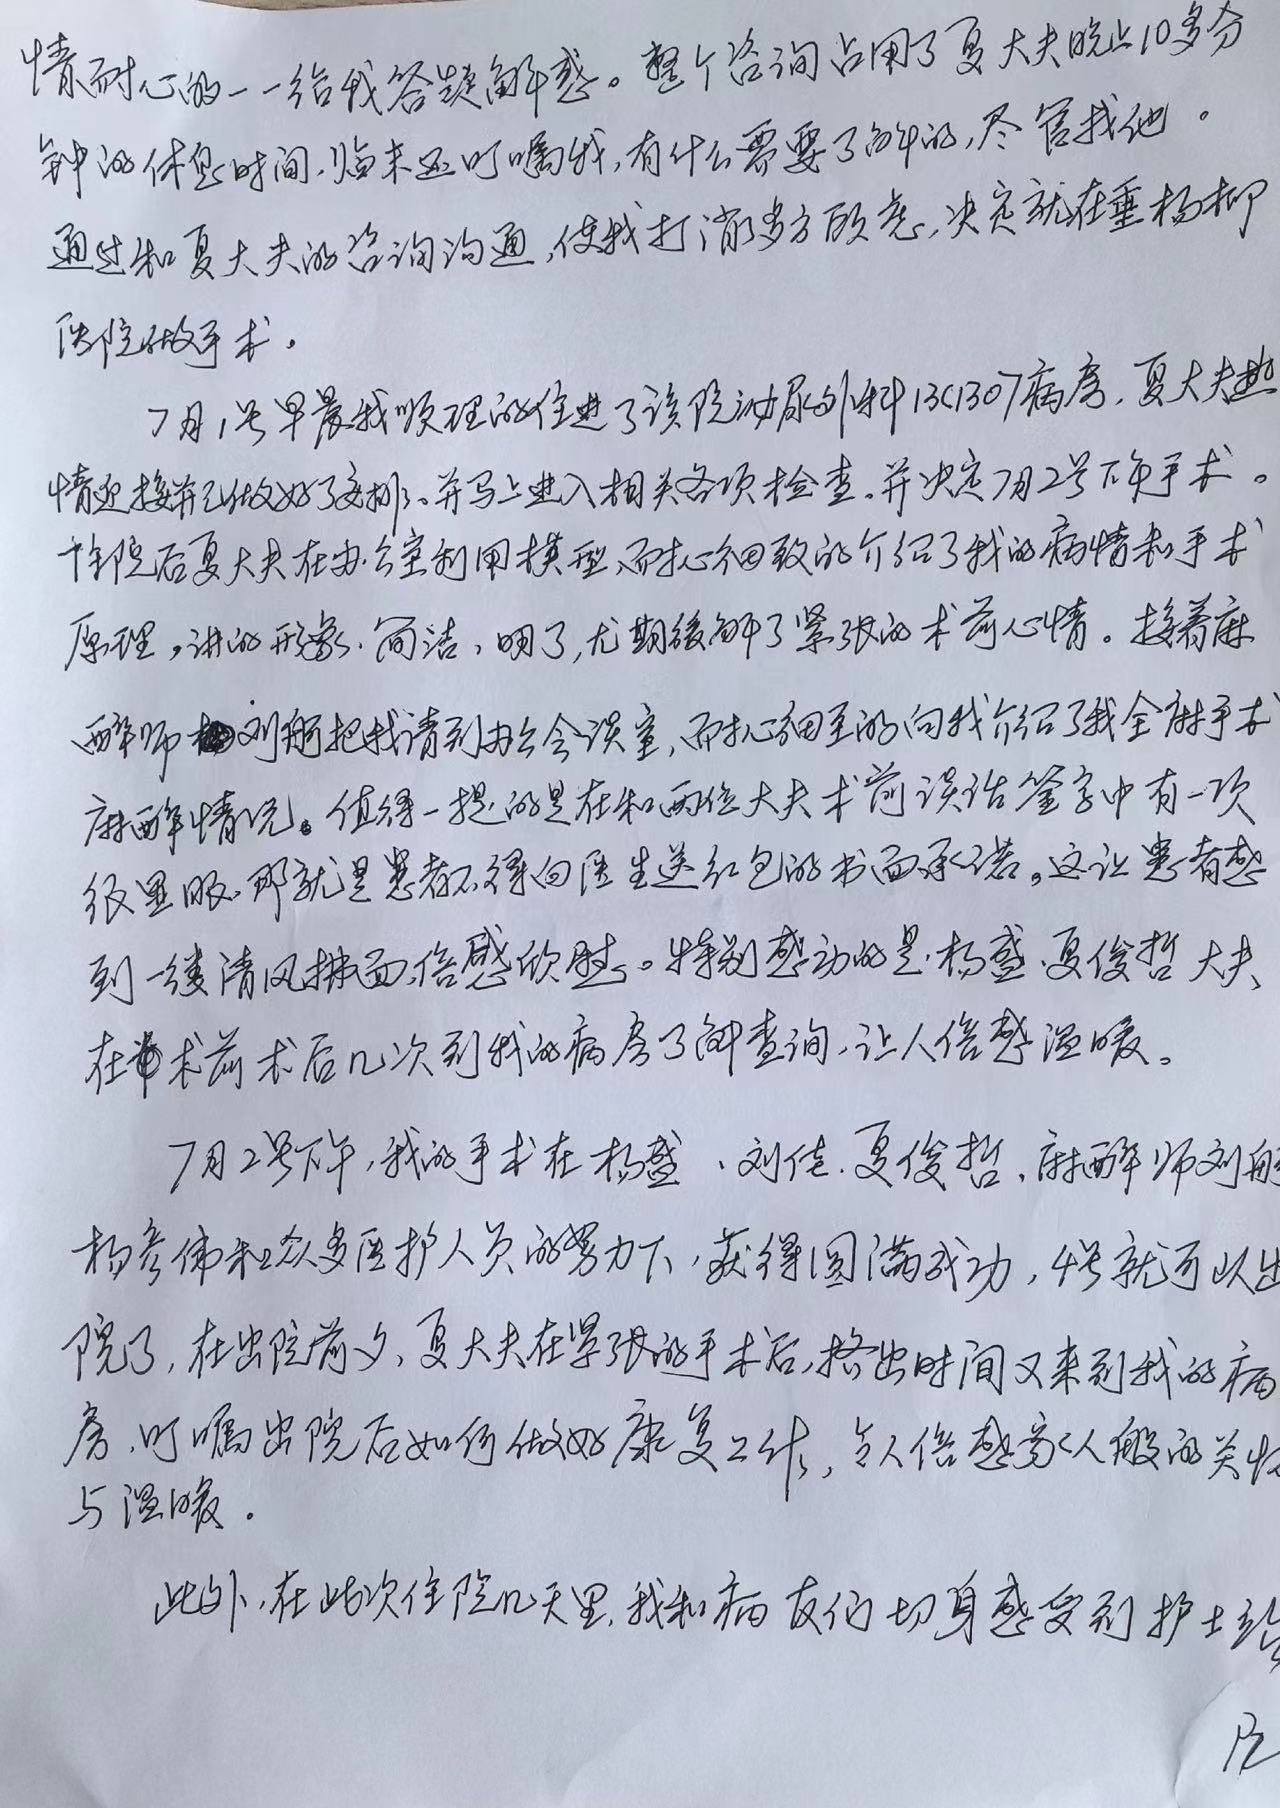 情耐心的一一给我答疑解惑。整个咨询占用了夏大夫晚上10多分
钟的休息时间.临末还叮嘱我,有什么需要了解的,尽管找他.
通过和夏大夫的咨询沟通,使我打消多方顾虑,决定就在垂杨柳
医院做手术.
7月1号早晨我顺理的住进了该院泌尿外科13C1307病房.夏大夫热
情迎接并已做好了安排.并马上进入相关各项检查.并决定7月2号下午手术.
住院后夏大夫在办公室利用模型、耐心细致的介绍了我的病情和手术
原理,讲的形象、简洁、明了,尤期缓解了紧张的术前心情。接着麻
醉师刘舸把我请到办公会谈室,耐心细至的向我介绍了我全麻手术
麻醉情况。值得一提的是在和两位大夫术前谈话签字中有一项
很显眼.那就是患者不得向医生送红包的书面承诺。这让患者感
到一缕清风拂面,倍感欣慰。特别感动的是.杨盛、夏俊哲大夫,
在术前术后几次到我的病房了解查询.让人倍感温暖。
7月2号下午,我的手术在杨盛、刘佳.夏俊哲、麻醉师刘舸
杨彦伟和众多医护人员的努力下,获得圆满成功,4号就可以出
院了,在出院前夕,夏大夫在紧张的手术后,挤出时间又来到我的病
房.叮嘱出院后如何做好康复工作,令人倍感家人般的关怀
与温暖.
此外,在此次住院几天里,我和病友们切身感受到护士站